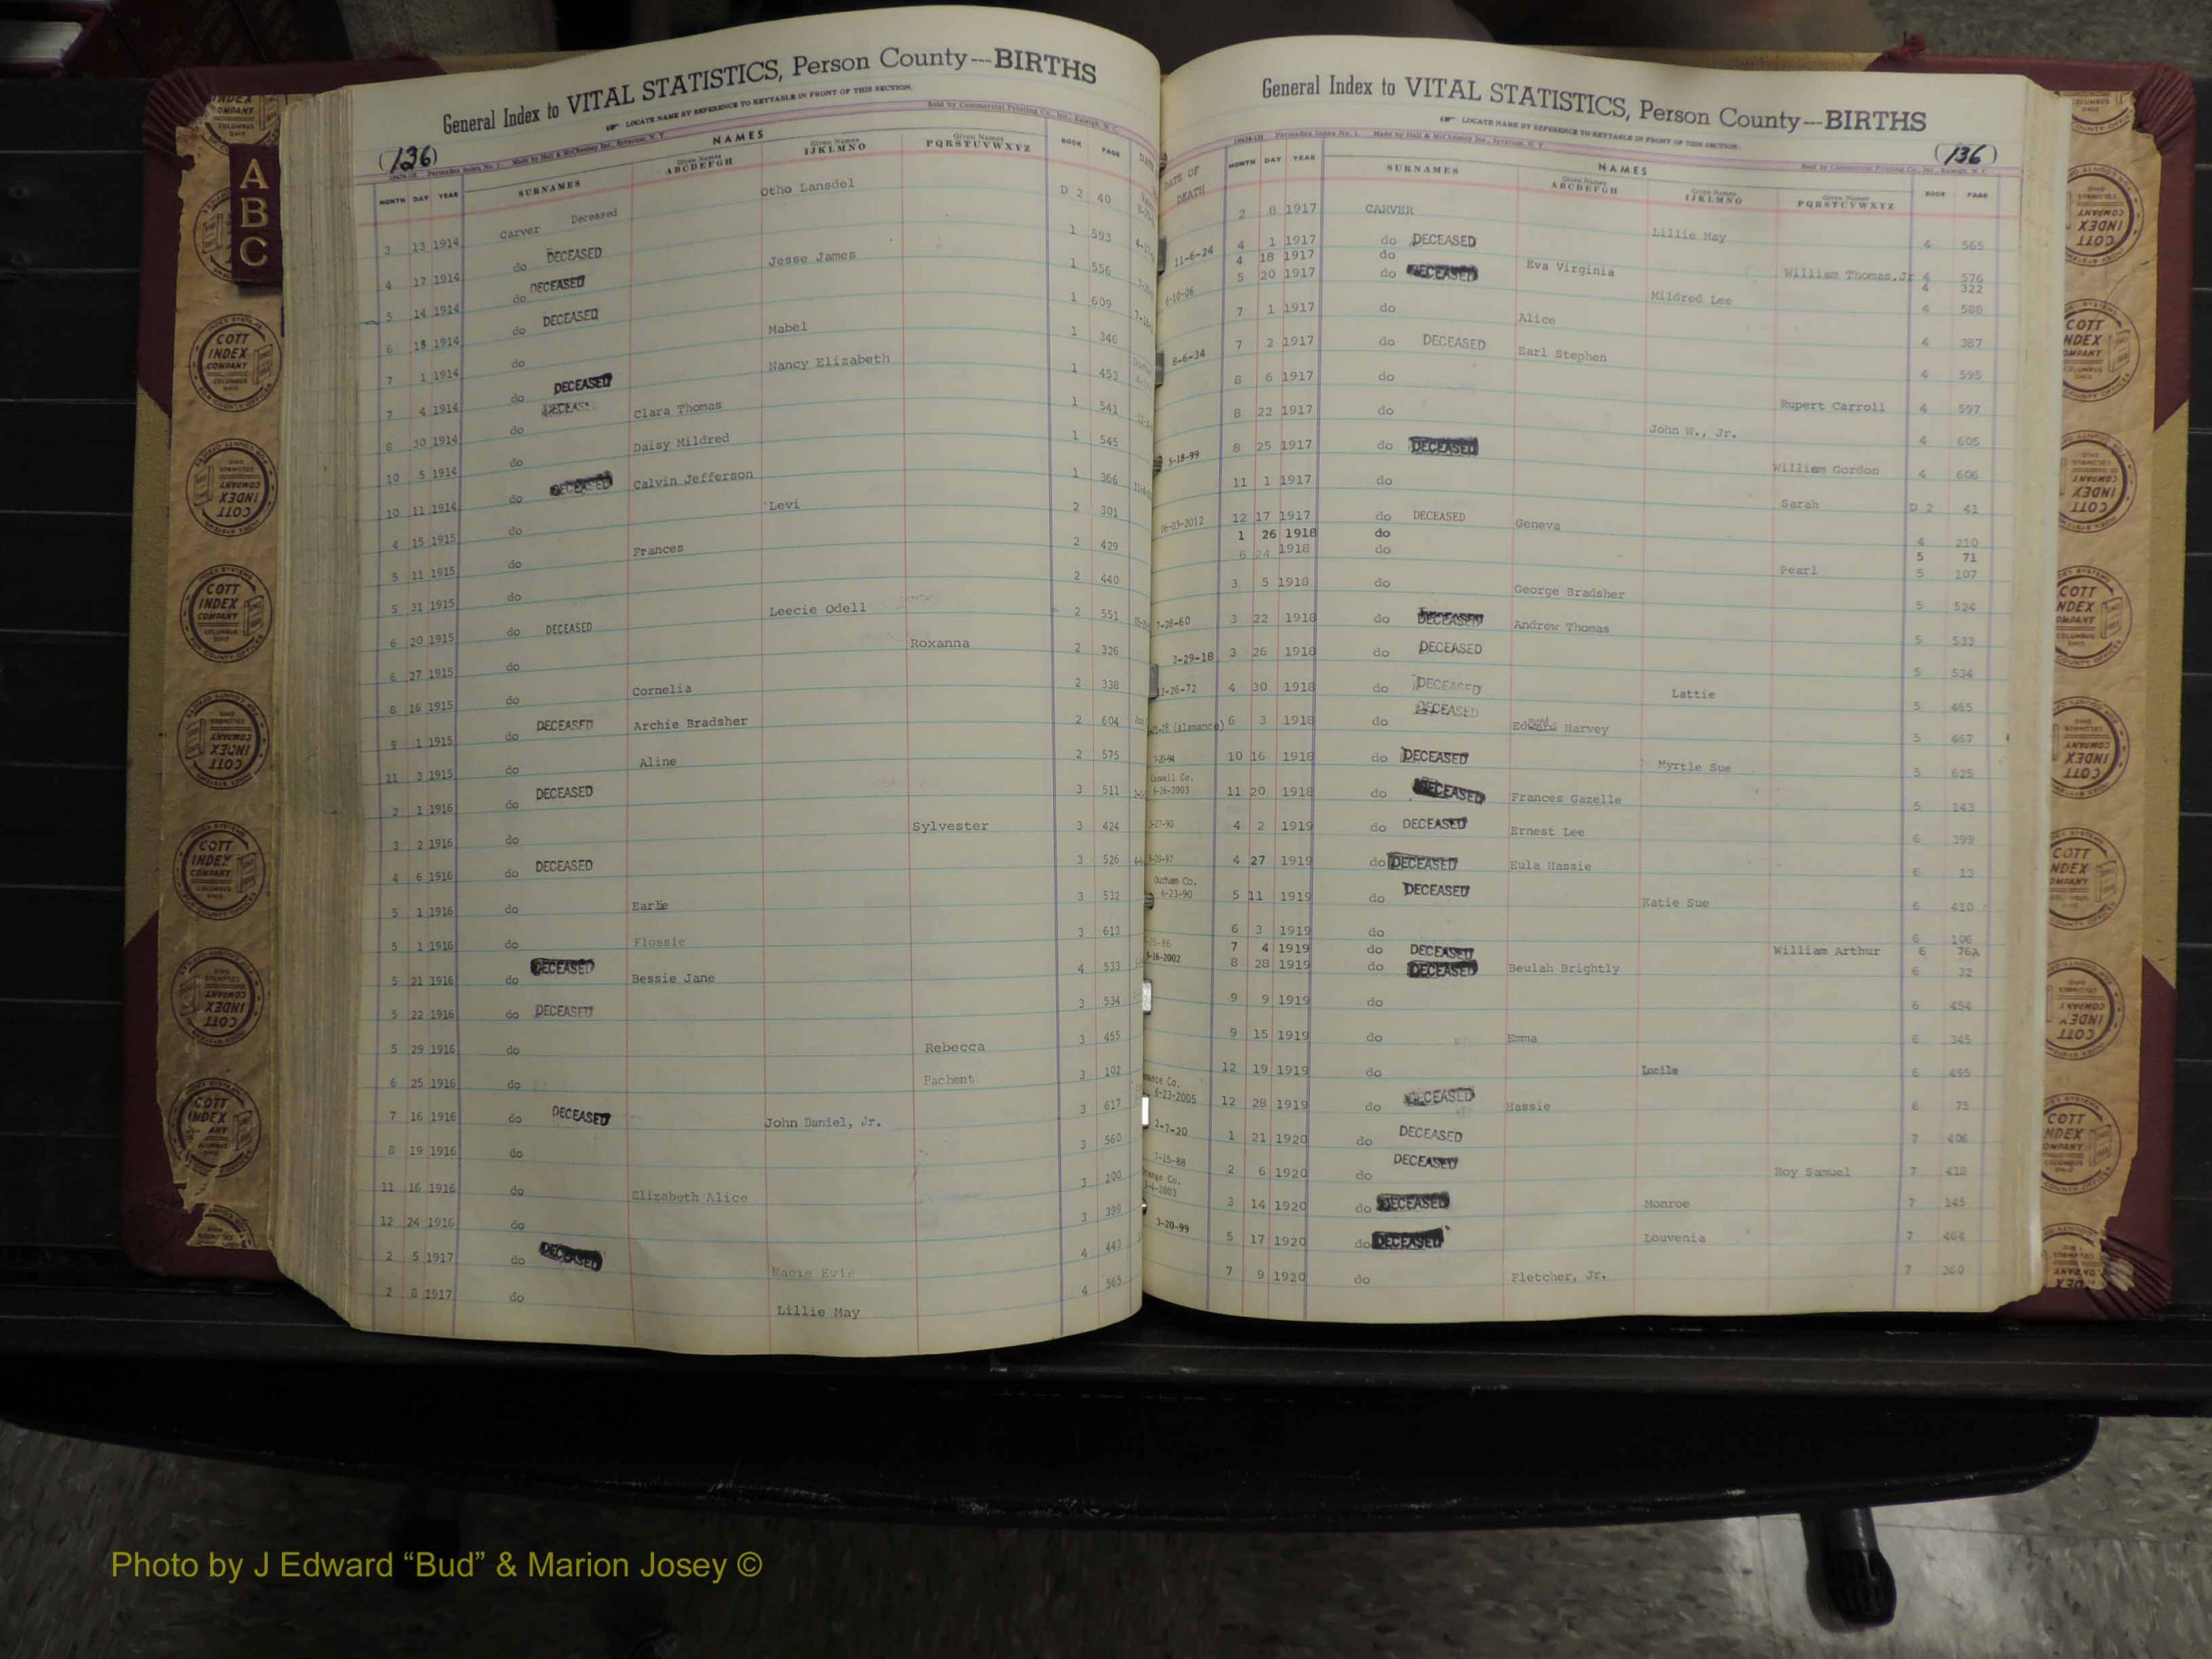 General Index to VITAL STATISTICS, Person County---BIRTHS
LOCATE NAME BY REFERENCE TO KEYTABLE IN FRONT OF THIS SECTION.
(136)
Made by Hall & McChesney Inc., Syracuse, N. Y.
Sold by Commercial Printing Co., Inc., Raleigh, N. C.
A
B
C
MONTH DAY YEAR SURNAMES NAMES Given Names ABCDEFGH Given Names IJKLMNO Given Names PQRSTUVWXYZ BOOK PAGE
3 13 1914 Carver Deceased Otho Lansdel D 2 40
4 17 1914 do DECEASED 1 593
5 14 1914 do DECEASED Jesse James 1 556
6 18 1914 do DECEASED 1 609
7 1 1914 do Mabel 1 346
7 4 1914 do DECEASED Nancy Elizabeth 1 453
8 30 1914 do DECEASED Clara Thomas 1 541
10 5 1914 do Daisy Mildred 1 545
10 11 1914 do DECEASED Calvin Jefferson 1 366
4 15 1915 do Levi 2 301
5 11 1915 do Frances 2 429
5 31 1915 do 2 440
6 20 1915 do DECEASED Leecie Odell 2 551
6 27 1915 do Roxanna 2 326
8 16 1915 do Cornelia 2 338
9 1 1915 do DECEASED Archie Bradsher 2 604
11 3 1915 do Aline 2 575
2 1 1916 do DECEASED 3 511
3 2 1916 do Sylvester 3 424
4 6 1916 do DECEASED 3 526
5 1 1916 do Earlie 3 532
5 1 1916 do Flossie 3 613
5 21 1916 do DECEASED Bessie Jane 4 533
5 22 1916 do DECEASED 3 534
5 29 1916 do Rebecca 3 455
6 25 1916 do Pachent 3 102
7 16 1916 do DECEASED John Daniel, Jr. 3 617
8 19 1916 do 3 560
11 16 1916 do Elizabeth Alice 3 200
12 24 1916 do 3 399
2 5 1917 do DECEASED Macie Evie 4 443
2 8 1917 do Lillie May 4 565
General Index to VITAL STATISTICS, Person County---BIRTHS
LOCATE NAME BY REFERENCE TO KEYTABLE IN FRONT OF THIS SECTION.
(136)
Made by Hall & McChesney Inc., Syracuse, N. Y.
Sold by Commercial Printing Co., Inc., Raleigh, N. C.
DATE OF DEATH MONTH DAY YEAR SURNAMES NAMES Given Names ABCDEFGH Given Names IJKLMNO Given Names PQRSTUVWXYZ BOOK PAGE
2 8 1917 CARVER Lillie May 4 565
11-6-24 4 1 1917 do DECEASED William Thomas, Jr 4 576
4 18 1917 do Eva Virginia 4 322
6-10-06 5 20 1917 do DECEASED Mildred Lee 4 588
7 1 1917 do Alice 4 387
8-6-34 7 2 1917 do DECEASED Earl Stephen 4 595
8 6 1917 do Rupert Carroll 4 597
8 22 1917 do John W., Jr. 4 605
5-18-99 8 25 1917 do DECEASED William Gordon 4 606
11 1 1917 do Sarah D 2 41
06-03-2012 12 17 1917 do DECEASED Geneva 4 210
1 26 1918 do 5 71
6 24 1918 do Pearl 5 107
3 5 1918 do George Bradsher 5 524
7-28-60 3 22 1918 do DECEASED Andrew Thomas 5 533
3-29-18 3 26 1918 do DECEASED 5 534
12-26-72 4 30 1918 do DECEASED Lattie 5 465
(Alamance) 6 3 1918 do DECEASED Edward Harvey 5 467
10 16 1918 do DECEASED Myrtle Sue 5 625
Caswell Co. 6-16-2003 11 20 1918 do DECEASED Frances Gazelle 5 143
3-27-90 4 2 1919 do DECEASED Ernest Lee 6 399
8-20-97 4 27 1919 do DECEASED Eula Hassie 6 13
Durham Co. 6-23-90 5 11 1919 do DECEASED Katie Sue 6 410
6 3 1919 do 6 106
7 4 1919 do DECEASED William Arthur 6 76A
9-16-2002 8 28 1919 do DECEASED Beulah Brightly 6 32
9 9 1919 do 6 454
9 15 1919 do Emma 6 345
12 19 1919 do Lucile 6 495
6-23-2005 12 28 1919 do DECEASED Hassie 6 75
2-7-20 1 21 1920 do DECEASED 7 406
7-15-88 2 6 1920 do DECEASED Roy Samuel 7 418
Orange Co. 3-4-2003 3 14 1920 do DECEASED Monroe 7 145
3-20-99 5 17 1920 do DECEASED Louvenia 7 464
7 9 1920 do Fletcher, Jr. 7 360
COTT INDEX COMPANY COLUMBUS OHIO
Photo by J Edward “Bud” & Marion Josey ©